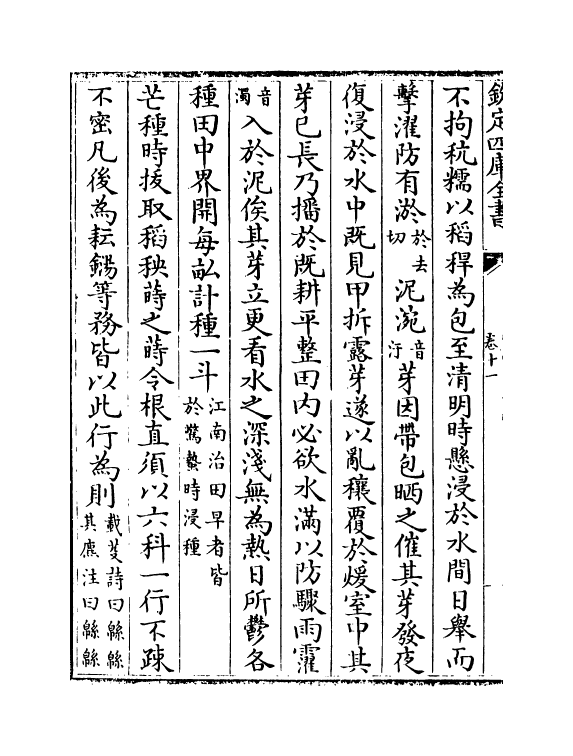 欽定四庫全書
卷十一
不拘秔糯以稻稈為包至清明時懸浸於水間日舉而
擊濯防有淤於去切泥涴音汙芽因帶包晒之催其芽發夜
復浸於水中既見甲拆露芽遂以亂穰覆於煖室中其
芽已長乃播於既耕平整田内必欲水滿以防驟雨霍
音濁入於泥俟其芽立更看水之深淺無為熱日所鬱各
種田中界開每畝計種一斗江南治田早者皆於驚蟄時浸種
芒種時拔取稻秧蒔之蒔令根直須以六科一行不疎
不密凡後為耘鍚等務皆以此行為則載芟詩曰緜緜其麃注曰緜緜